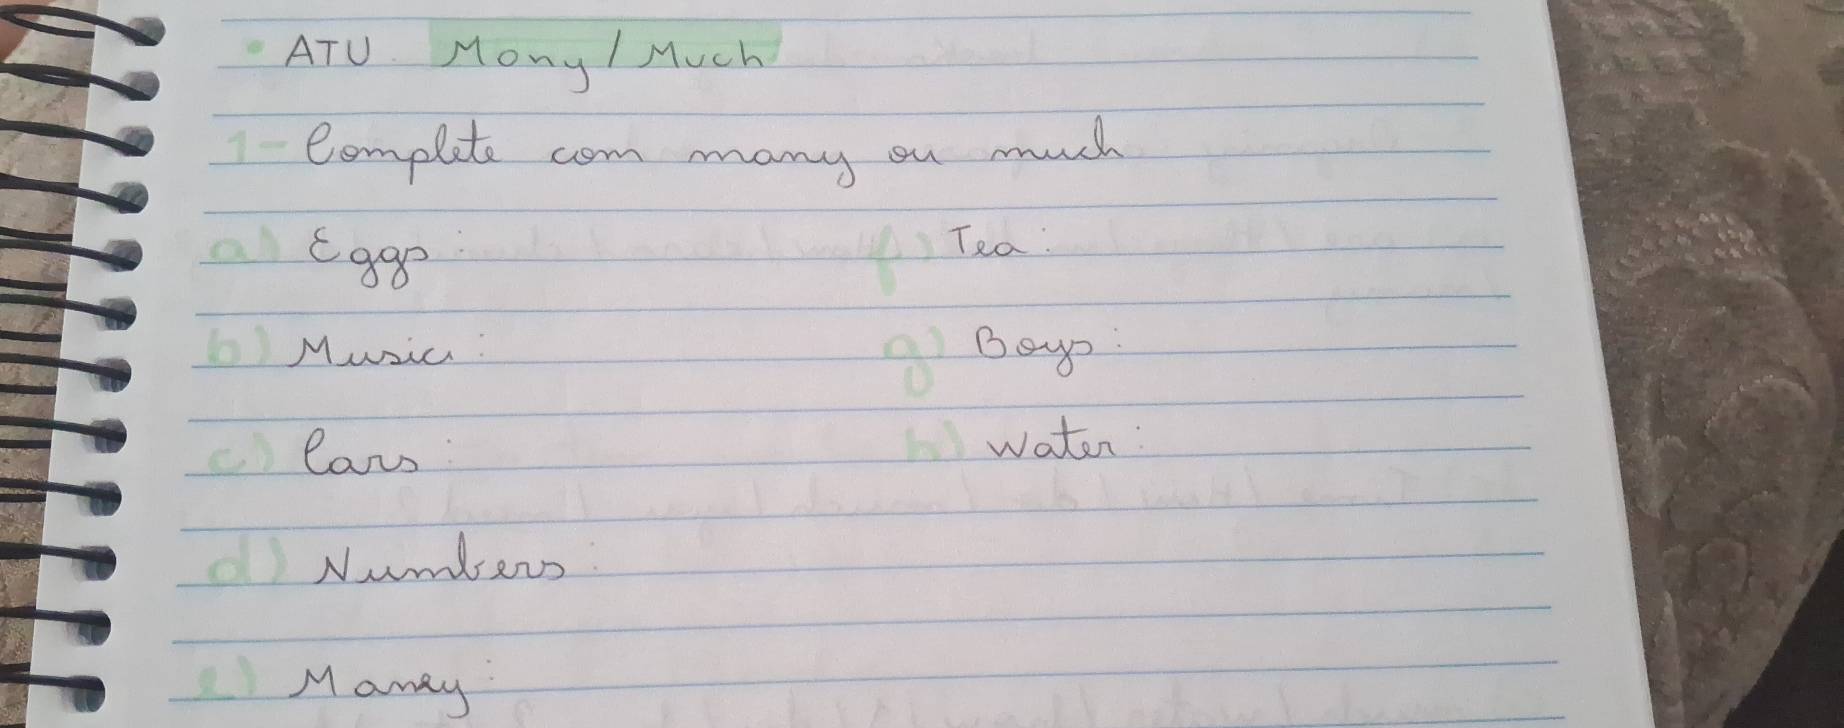 • ATU. Mony / Much
1- Complete com many ou much
a) Eggs:
f) Tea:
b) Music:
g) Boys:
c) Cars:
h) Water:
d) Numbers:
e) Maney: